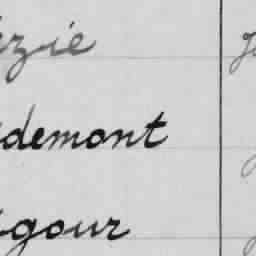 ézie
demont
gour